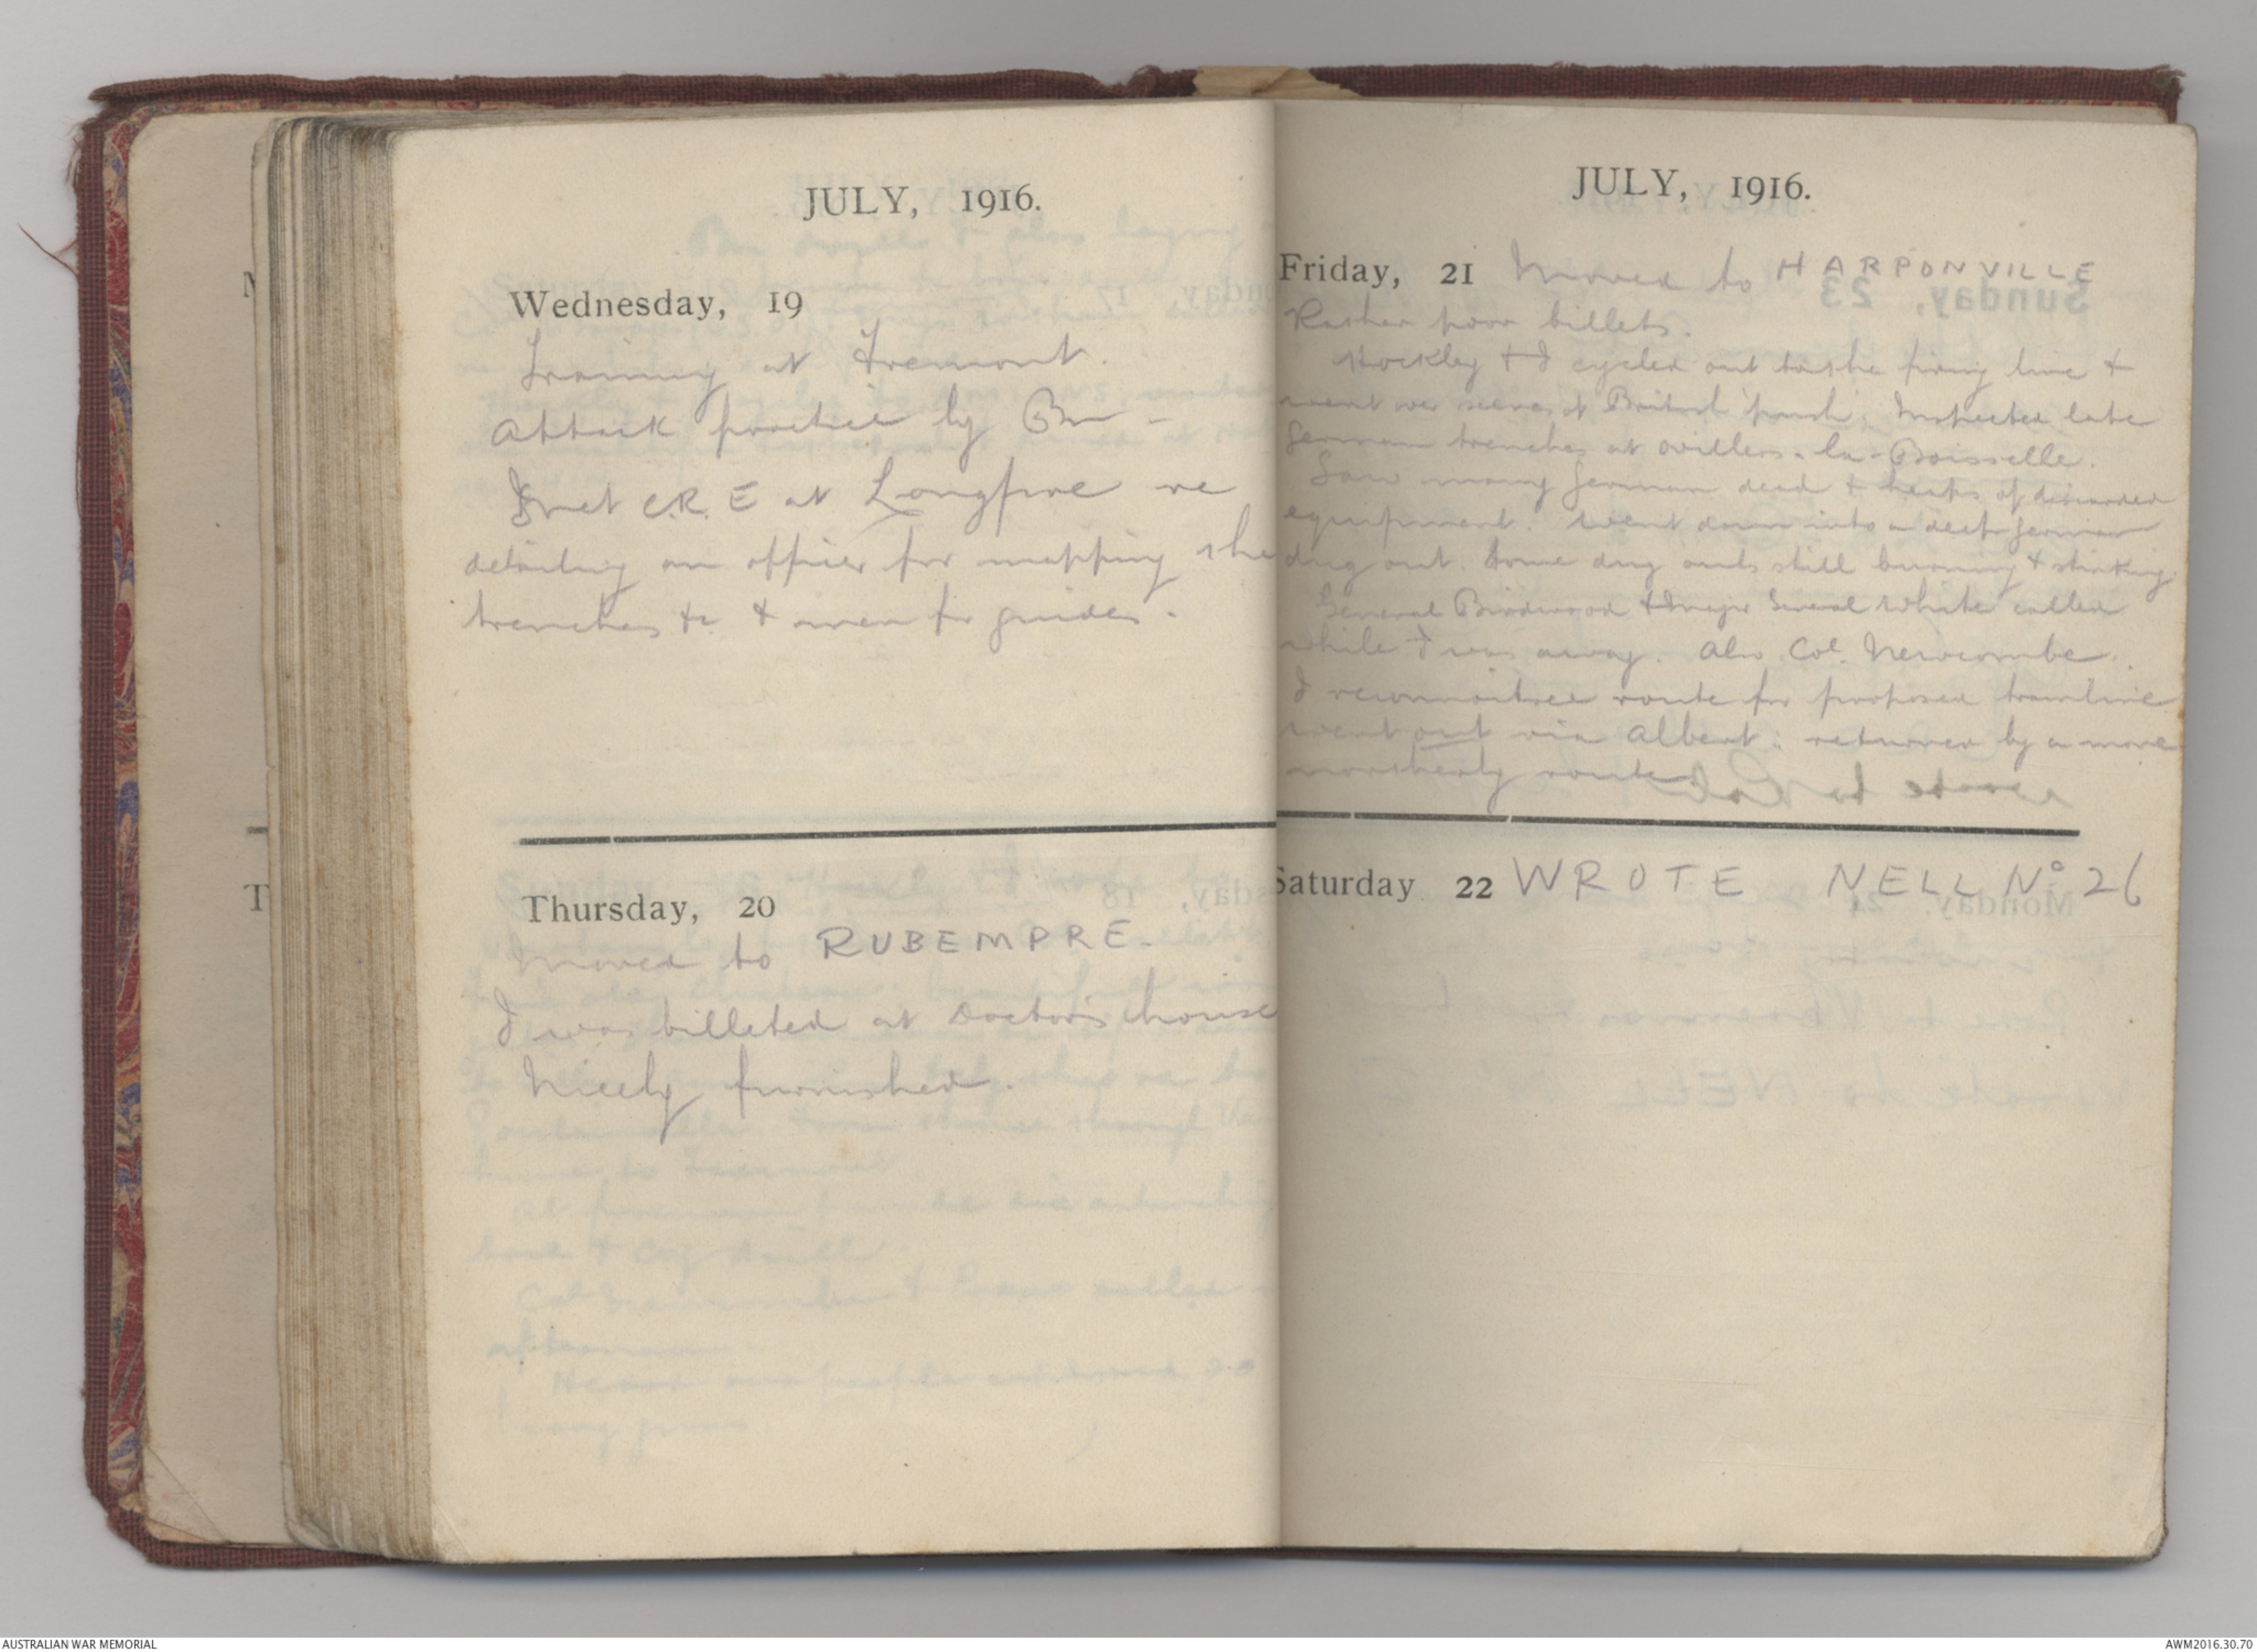 JULY, 1916.
Wednesday, 19
Training at Fremont.
Attack practice by Bn -
I met C.R.E at Longpre re
detailing an officer for mapping the
trenches &c & men for guides.
Thursday, 20
Moved to RUBEMPRE.
I was billeted at Doctor's house
Nicely furnished.
JULY, 1916.
Friday, 21 Moved to HARPONVILLE
Rather poor billets.
Hockley & I cycled out to the firing line &
went over scenes of British push. Inspected late
German trenches at Ovillers-la-Boisselle.
Saw many German dead & heaps of discarded
equipment. Went down into a deep German
dug out. Some dug outs still burning & stinking.
General Birdwood & Major General White called
while I was away. Also Col. Newcombe.
I reconnoitred route for proposed tramline
went out via Albert: returned by a more
northerly route
Saturday 22 WROTE NELL No 26
AUSTRALIAN WAR MEMORIAL
AWM2016.30.70